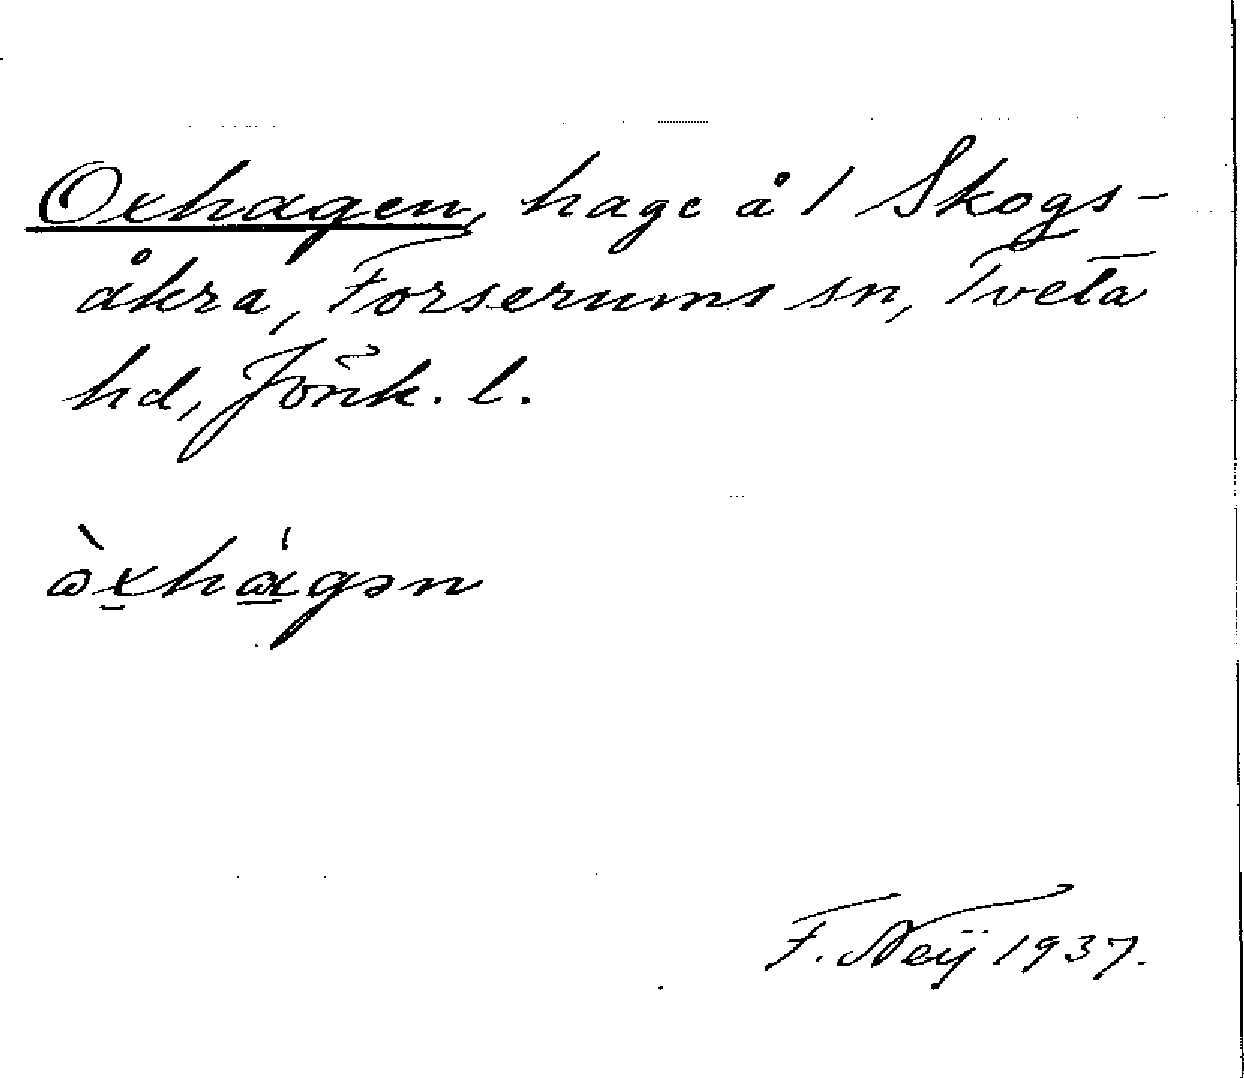 Oxhagen, hage å 1 Skogs-
åkra, Forserums sn, Tveta
hd, Jönk. l.
òxhágən
F. Neij 1937.